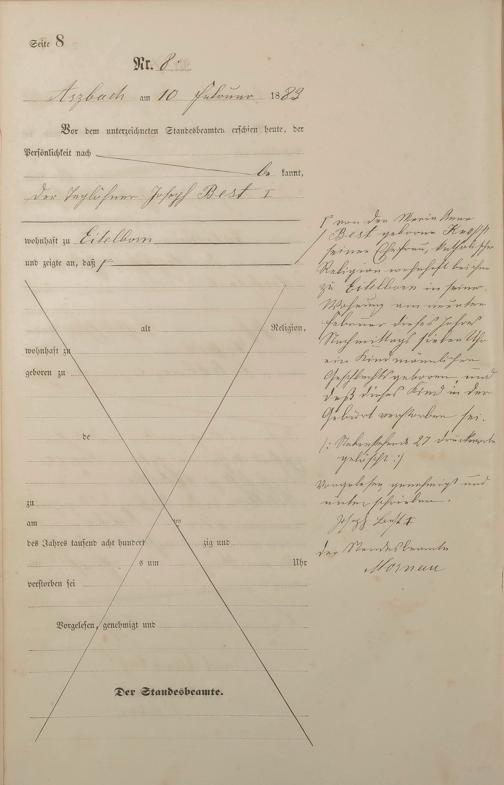 Seite 8
Nr. 8.
Arzbach am 10 Februar 1883
Vor dem unterzeichneten Standesbeamten erschien heute, der
Persönlichkeit nach
be kannt,
der Taglöhner Joseph Best I
wohnhaft zu Eitelborn
und zeigte an, daß
alt Religion,
wohnhaft zu
geboren zu
de
zu
am
des Jahres tausend acht hundert zig und
s um Uhr
verstorben sei
Vorgelesen, genehmigt und
Der Standesbeamte.
von der Maria Anna
Best geborne
seiner Ehefrau, katholischer
Religion wohnhaft bei ihm
zu Eitelborn in seiner
Wohnung am neunten
Februar dieses Jahres
Nachmittags sieben Uhr
ein Kind männlichen
Geschlechts geboren und
daß dieses Kind in der
Geburt verstorben sei.
/: Nebenstehende 27 Druckworte
gelöscht :/
Vorgelesen genehmigt und
unterschrieben.
Joseph Best I
der Standesbeamte